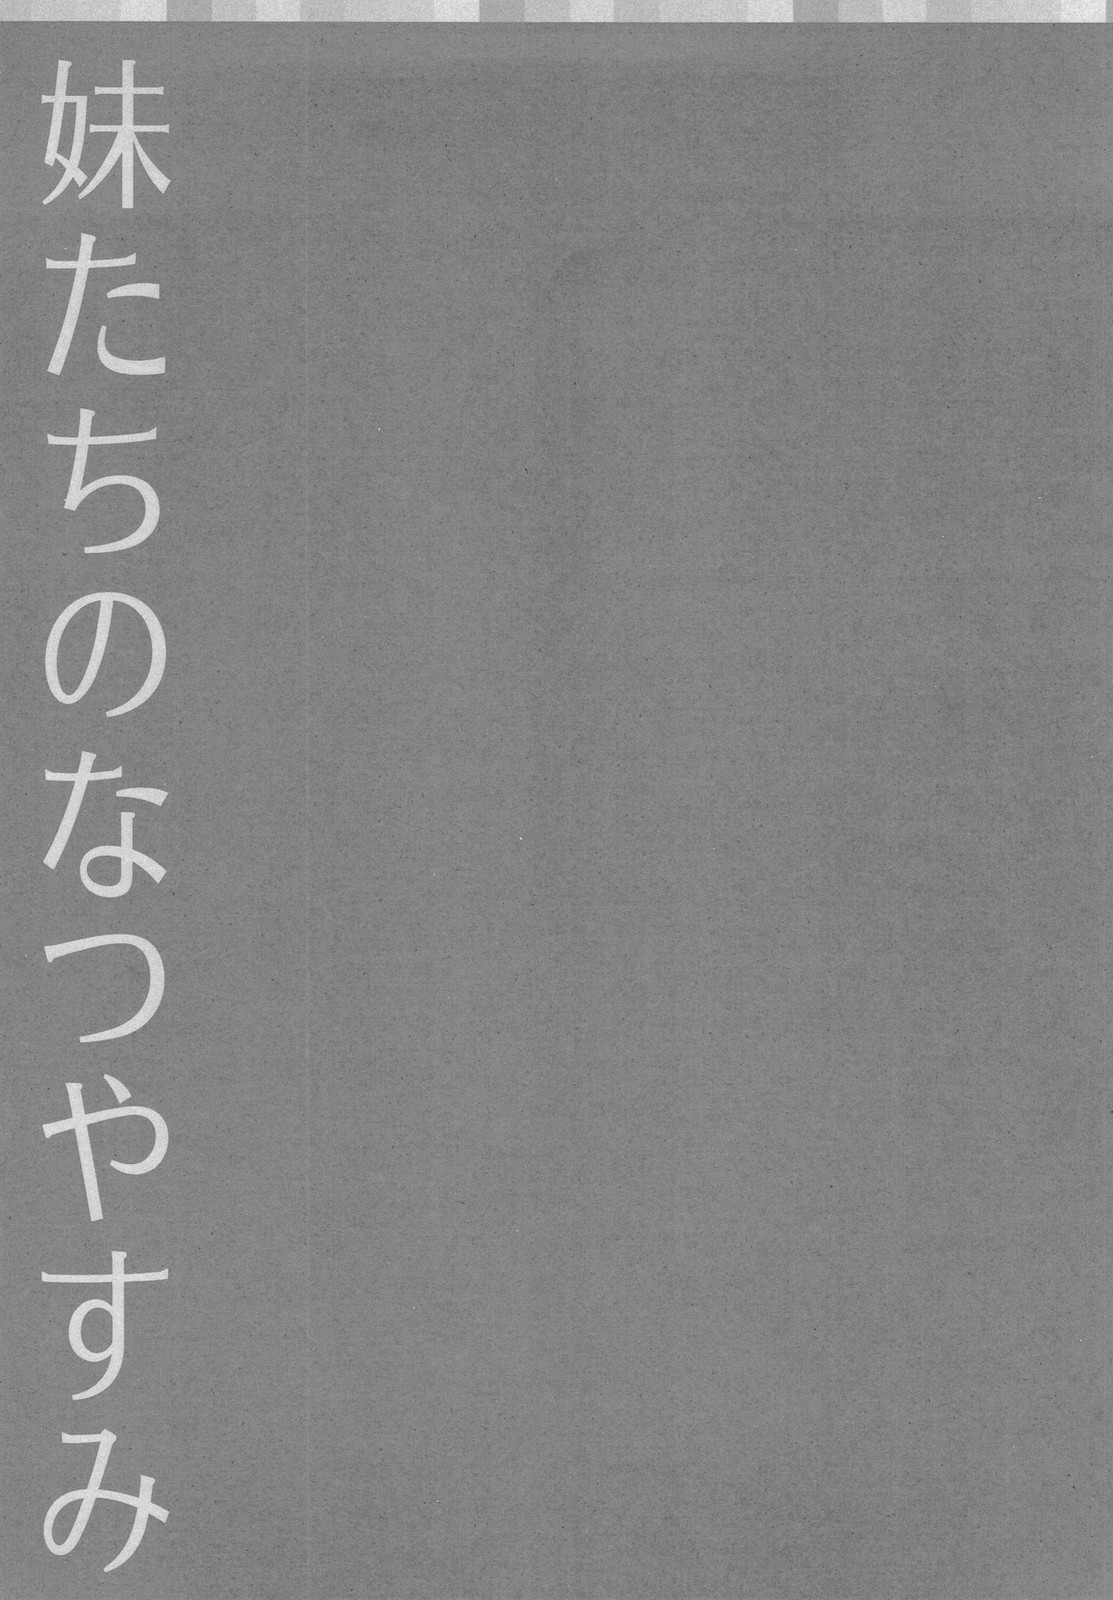 妹たちのなつやすみ